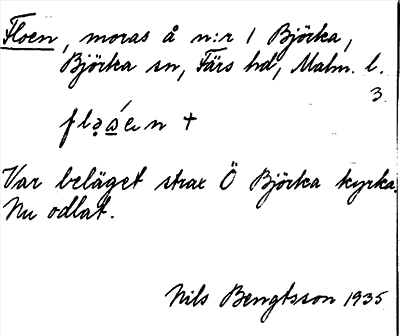 Floen, moras å n:r 1 Björka,
Björka sn, Färs hd, Malm. l.
3.
Var beläget strax Ö Björka kyrka.
Nu odlat.
Nils Bengtsson 1935